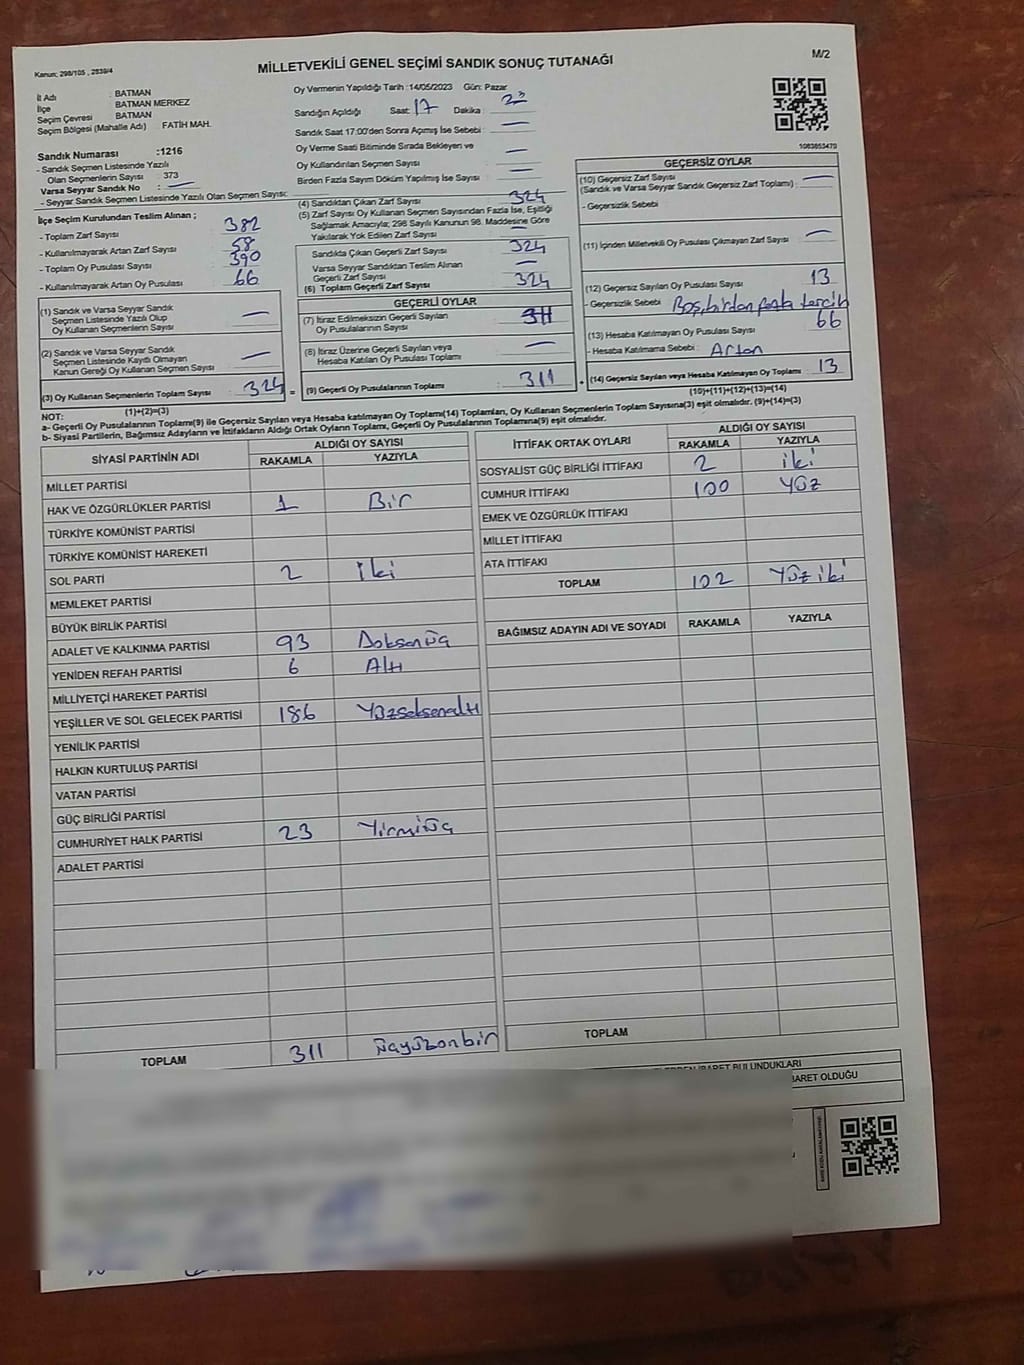 Kanun; 298/105 , 2839/4
MİLLETVEKİLİ GENEL SEÇİMİ SANDIK SONUÇ TUTANAĞI
M/2
İl Adı : BATMAN
İlçe BATMAN MERKEZ
Seçim Çevresi BATMAN
Seçim Bölgesi (Mahalle Adı) FATİH MAH.
Oy Vermenin Yapıldığı Tarih :14/05/2023 Gün: Pazar
Sandığın Açıldığı Saat: 17 Dakika :
Sandık Saat 17:00'den Sonra Açımış İse Sebebi : —
Oy Verme Saati Bitiminde Sırada Bekleyen ve
Oy Kullandırılan Seçmen Sayısı : —
Birden Fazla Sayım Döküm Yapılmış İse Sayısı : —
1083853470
Sandık Numarası :1216
- Sandık Seçmen Listesinde Yazılı
Olan Seçmenlerin Sayısı : 373
Varsa Seyyar Sandık No : —
- Seyyar Sandık Seçmen Listesinde Yazılı Olan Seçmen Sayısı:
İlçe Seçim Kurulundan Teslim Alınan ;
- Toplam Zarf Sayısı 382
- Kullanılmayarak Artan Zarf Sayısı 58
- Toplam Oy Pusulası Sayısı 390
- Kullanılmayarak Artan Oy Pusulası 66
(1) Sandık ve Varsa Seyyar Sandık
Seçmen Listesinde Yazılı Olup
Oy Kullanan Seçmenlerin Sayısı —
(2) Sandık ve Varsa Seyyar Sandık
Seçmen Listesinde Kayıtlı Olmayan
Kanun Gereği Oy Kullanan Seçmen Sayısı —
(3) Oy Kullanan Seçmenlerin Toplam Sayısı 324
(1)+(2)=(3)
(4) Sandıktan Çıkan Zarf Sayısı 324
(5) Zarf Sayısı Oy Kullanan Seçmen Sayısından Fazla İse, Eşitliği
Sağlamak Amacıyla; 298 Sayılı Kanunun 98. Maddesine Göre
Yakılarak Yok Edilen Zarf Sayısı —
Sandıkta Çıkan Geçerli Zarf Sayısı 324
Varsa Seyyar Sandıktan Teslim Alınan
Geçerli Zarf Sayısı —
(6) Toplam Geçerli Zarf Sayısı 324
GEÇERLİ OYLAR
(7) İtiraz Edilmeksizin Geçerli Sayılan
Oy Pusulalarının Sayısı 311
(8) İtiraz Üzerine Geçerli Sayılan veya
Hesaba Katılan Oy Pusulası Toplamı —
= (9) Geçerli Oy Pusulalarının Toplamı 311
GEÇERSİZ OYLAR
(10) Geçersiz Zarf Sayısı
(Sandık ve Varsa Seyyar Sandık Geçersiz Zarf Toplamı) : —
- Geçersizlik Sebebi :
(11) İçinden Milletvekili Oy Pusulası Çıkmayan Zarf Sayısı : —
(12) Geçersiz Sayılan Oy Pusulası Sayısı 13
- Geçersizlik Sebebi : Boş, birden fazla tercih
(13) Hesaba Katılmayan Oy Pusulası Sayısı 66
- Hesaba Katılmama Sebebi : Artan
+ (14) Geçersiz Sayılan veya Hesaba Katılmayan Oy Toplamı 13
(10)+(11)+(12)+(13)=(14)
NOT:
a- Geçerli Oy Pusulalarının Toplamı(9) ile Geçersiz Sayılan veya Hesaba katılmayan Oy Toplamı(14) Toplamları, Oy Kullanan Seçmenlerin Toplam Sayısına(3) eşit olmalıdır. (9)+(14)=(3)
b- Siyasi Partilerin, Bağımsız Adayların ve İttifakların Aldığı Ortak Oyların Toplamı, Geçerli Oy Pusulalarının Toplamına(9) eşit olmalıdır.
SİYASİ PARTİNİN ADI ALDIĞI OY SAYISI
RAKAMLA YAZIYLA
MİLLET PARTİSİ
HAK VE ÖZGÜRLÜKLER PARTİSİ 1 Bir
TÜRKİYE KOMÜNİST PARTİSİ
TÜRKİYE KOMÜNİST HAREKETİ
SOL PARTİ 2 İki
MEMLEKET PARTİSİ
BÜYÜK BİRLİK PARTİSİ
ADALET VE KALKINMA PARTİSİ 93 Doksanüç
YENİDEN REFAH PARTİSİ 6 Altı
MİLLİYETÇİ HAREKET PARTİSİ
YEŞİLLER VE SOL GELECEK PARTİSİ 186 Yüzseksenaltı
YENİLİK PARTİSİ
HALKIN KURTULUŞ PARTİSİ
VATAN PARTİSİ
GÜÇ BİRLİĞİ PARTİSİ
CUMHURİYET HALK PARTİSİ 23 Yirmiüç
ADALET PARTİSİ
TOPLAM 311 üçyüzonbir
İTTİFAK ORTAK OYLARI ALDIĞI OY SAYISI
RAKAMLA YAZIYLA
SOSYALİST GÜÇ BİRLİĞİ İTTİFAKI 2 iki
CUMHUR İTTİFAKI 100 yüz
EMEK VE ÖZGÜRLÜK İTTİFAKI
MİLLET İTTİFAKI
ATA İTTİFAKI
TOPLAM 102 Yüz iki
BAĞIMSIZ ADAYIN ADI VE SOYADI RAKAMLA YAZIYLA
TOPLAM
BULUNDUKLARI
OLDUĞU